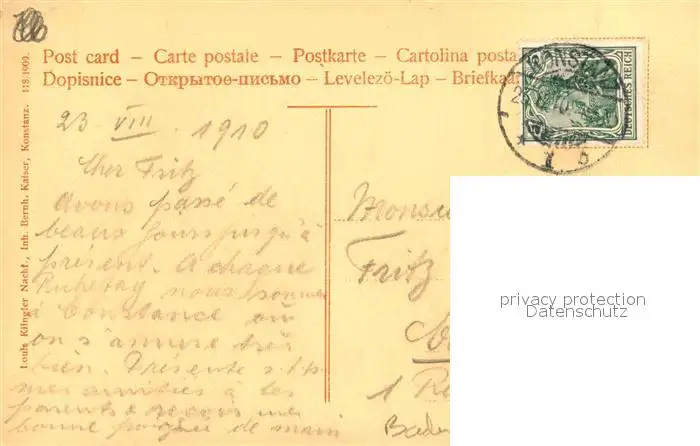 Post card – Carte postale – Postkarte – Cartolina posta
Dopisnice – Открытое-письмо – Levelező-Lap – Briefkaar
Louis Klingler Nachf., Inh. Bernh. Kaiser, Konstanz. 118 1909.
KONSTANZ
1 b
DEUTSCHES REICH
23 VIII 1910
Cher Fritz
avons passé de
beaux jours jusqu'à
présent. A chaque
Ruhetag nous sommes
à Constance où
on s'amuse très
bien. Présente s.t.
mes amitiés à tes
parents & reçois une
bonne poignée de main
Monsie
Fritz
1 Re
Baden
privacy protection
Datenschutz